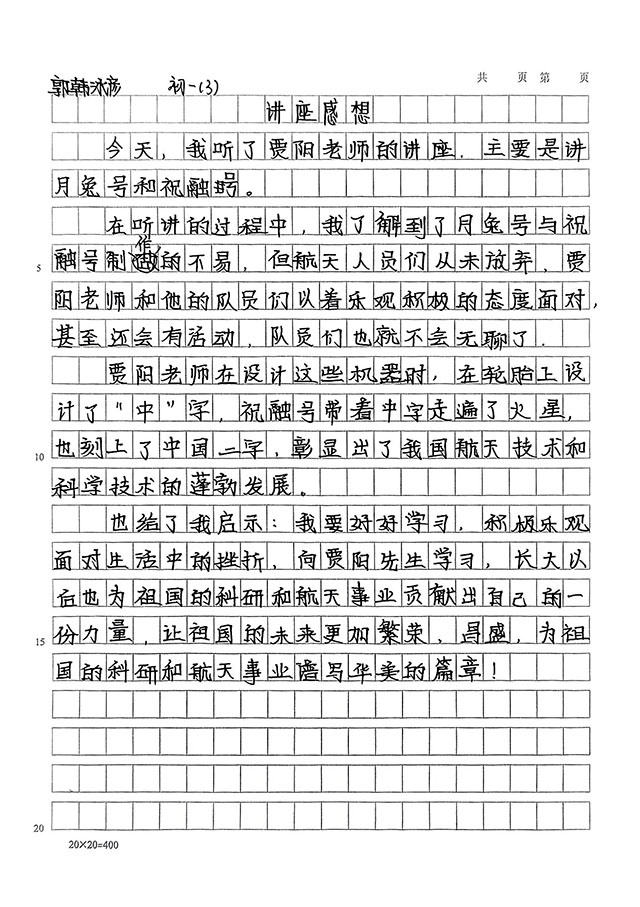 郭韩沐彦 初一(3)
共 页 第 页
讲座感想
今天，我听了贾阳老师的讲座．主要是讲
月兔号和祝融号。
在听讲的过程中，我了解到了月兔号与祝
融号制作的不易，但航天人员们从未放弃，贾
5
阳老师和他的队员们以着乐观积极的态度面对，
甚至还会有活动，队员们也就不会无聊了．
贾阳老师在设计这些机器时，在轮胎上设
计了“中”字，祝融号带着中字走遍了火星，
也刻上了中国二字，彰显出了我国航天技术和
10
科学技术的蓬勃发展。
也给了我启示：我要好好学习，积极乐观
面对生活中的挫折，向贾阳先生学习，长大以
后也为祖国的科研和航天事业贡献出自己的一
份力量，让祖国的未来更加繁荣、昌盛，为祖
15
国的科研和航天事业谱写华美的篇章！
20
20×20=400